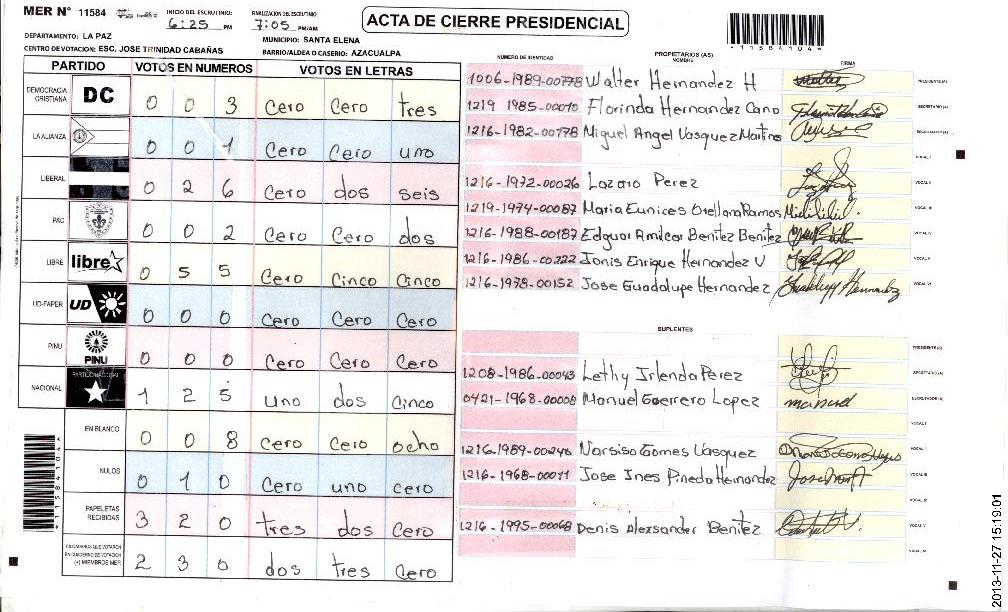 MER N° 11584
INICIO DEL ESCRUTINIO: 6:25 PM
FINALIZACION DEL ESCRUTINIO: 7:05 PM/AM
ACTA DE CIERRE PRESIDENCIAL
*11584104*
DEPARTAMENTO: LA PAZ
MUNICIPIO: SANTA ELENA
CENTRO DE VOTACION: ESC. JOSE TRINIDAD CABAÑAS
BARRIO/ALDEA O CASERIO: AZACUALPA
PARTIDO VOTOS EN NUMEROS VOTOS EN LETRAS
DEMOCRACIA CRISTIANA DC 0 0 3 cero cero tres
LA ALIANZA 0 0 1 cero cero uno
LIBERAL 0 2 6 cero dos seis
PAC 0 0 2 cero cero dos
LIBRE libre 0 5 5 cero cinco cinco
UD-FAPER UD 0 0 0 cero cero cero
PINU PINU 0 0 0 cero cero cero
NACIONAL PARTIDO NACIONAL 1 2 5 uno dos cinco
EN BLANCO 0 0 8 cero cero ocho
NULOS 0 1 0 cero uno cero
PAPELETAS RECIBIDAS 3 2 0 tres dos cero
CIUDADANOS QUE VOTARON EN CUADERNO DE VOTACION (+) MIEMBROS MER 2 3 0 dos tres cero
*11584104*
NUMERO DE IDENTIDAD PROPIETARIOS (AS) NOMBRE FIRMA
1006-1989-00778 Walter Hernandez H PRESIDENTE(A)
1219 1985-00010 Florinda Hernandez Cano SECRETARIO(A)
1216-1982-00178 Miguel Angel Vasquez Martino
VOCAL I
1216-1972-00026 Lazaro Perez VOCAL II
1219-1974-00087 Maria Eunices Orellana Ramos VOCAL III
1216-1988-00187 Edguar Amilcar Benitez Benitez VOCAL IV
1216-1986-00222 Jonis Enrique Hernandez V VOCAL V
1216-1978-00152 Jose Guadalupe Hernandez VOCAL VI
SUPLENTES
PRESIDENTE(A)
1208-1986-00043 Lethy Irlenda Perez SECRETARIO(A)
0421-1968-00008 Manuel Guerrero Lopez manuel ESCRUTADOR(A)
VOCAL I
1216-1989-00246 Narsiso Gomes Vasquez
1216-1968-00011 Jose Ines Pineda Hernandez VOCAL III
VOCAL IV
1216-1995-00068 Denis Alexsander Benitez VOCAL V
VOCAL VI
2013-11-27 15:19:01